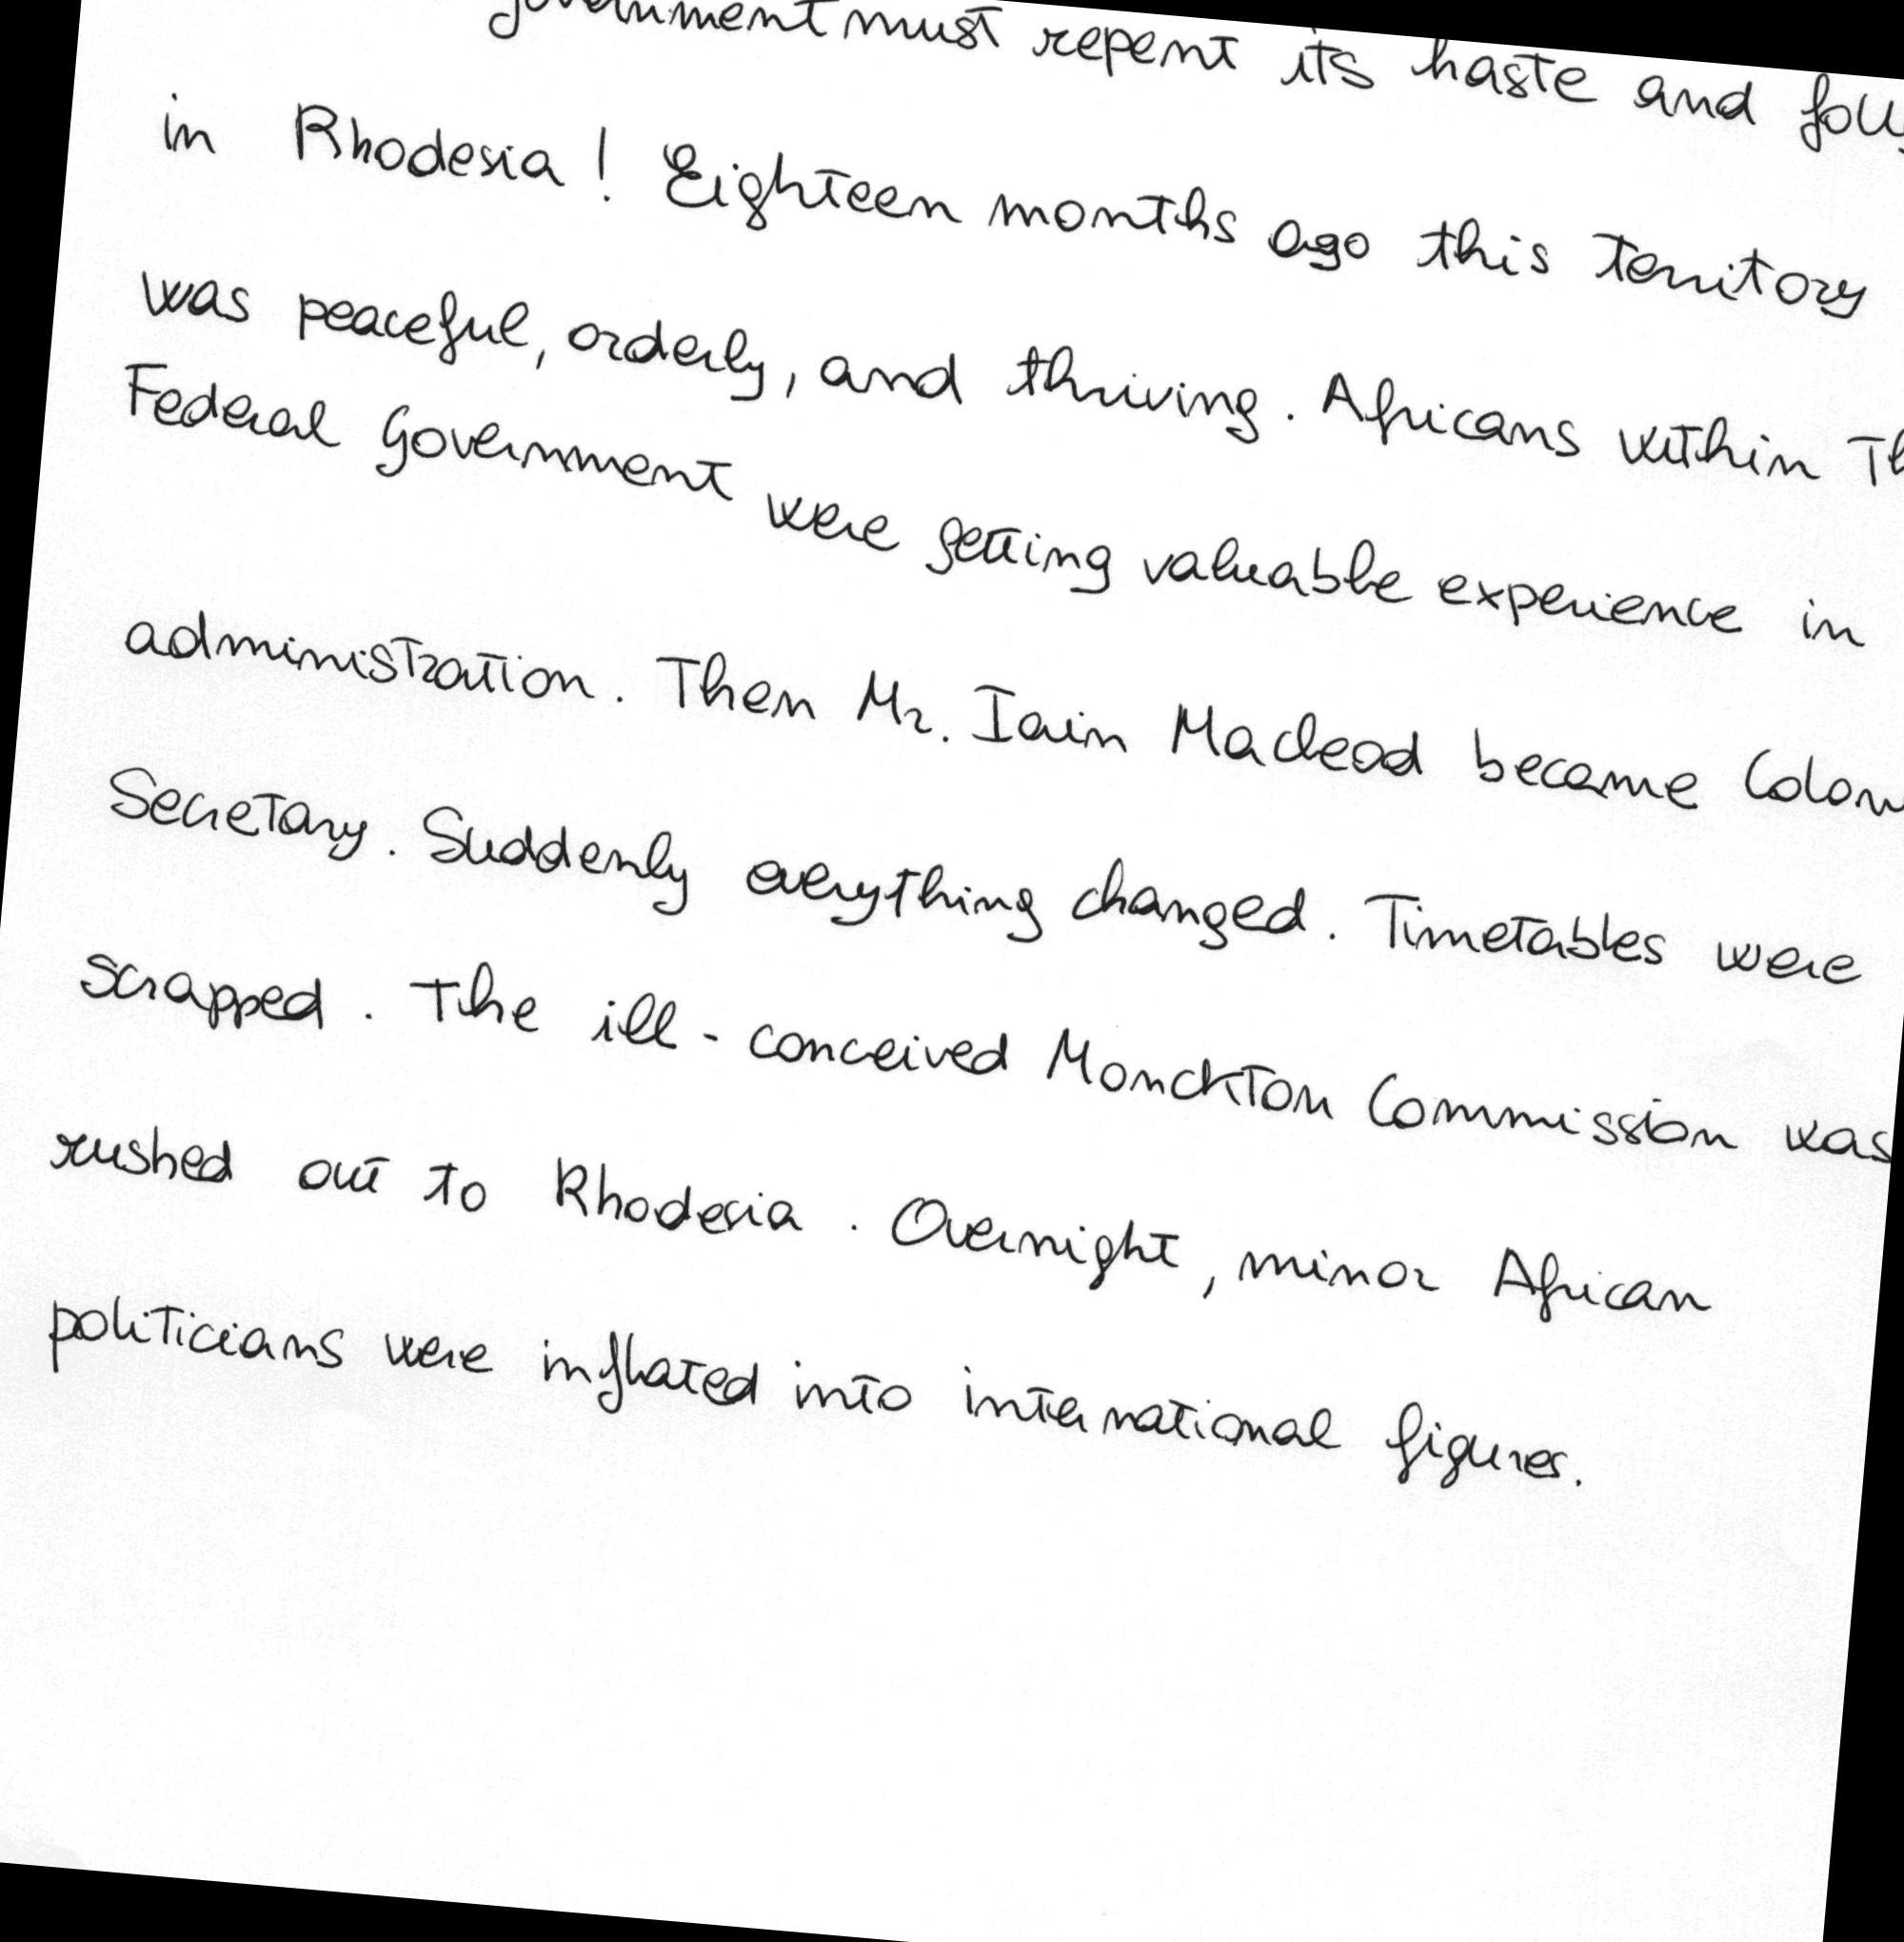 government must repent its haste and folly
in Rhodesia! Eighteen months ago this territory
was peaceful, orderly, and thriving. Africans within
Federal Government were getting valuable experience in
administration. Then Mr. Iain Macleod became
Secretary. Suddenly everything changed. Timetables were
scrapped. The ill-conceived Monckton Commission was
rushed out to Rhodesia. Overnight, minor African
politicians were inflated into international figures.